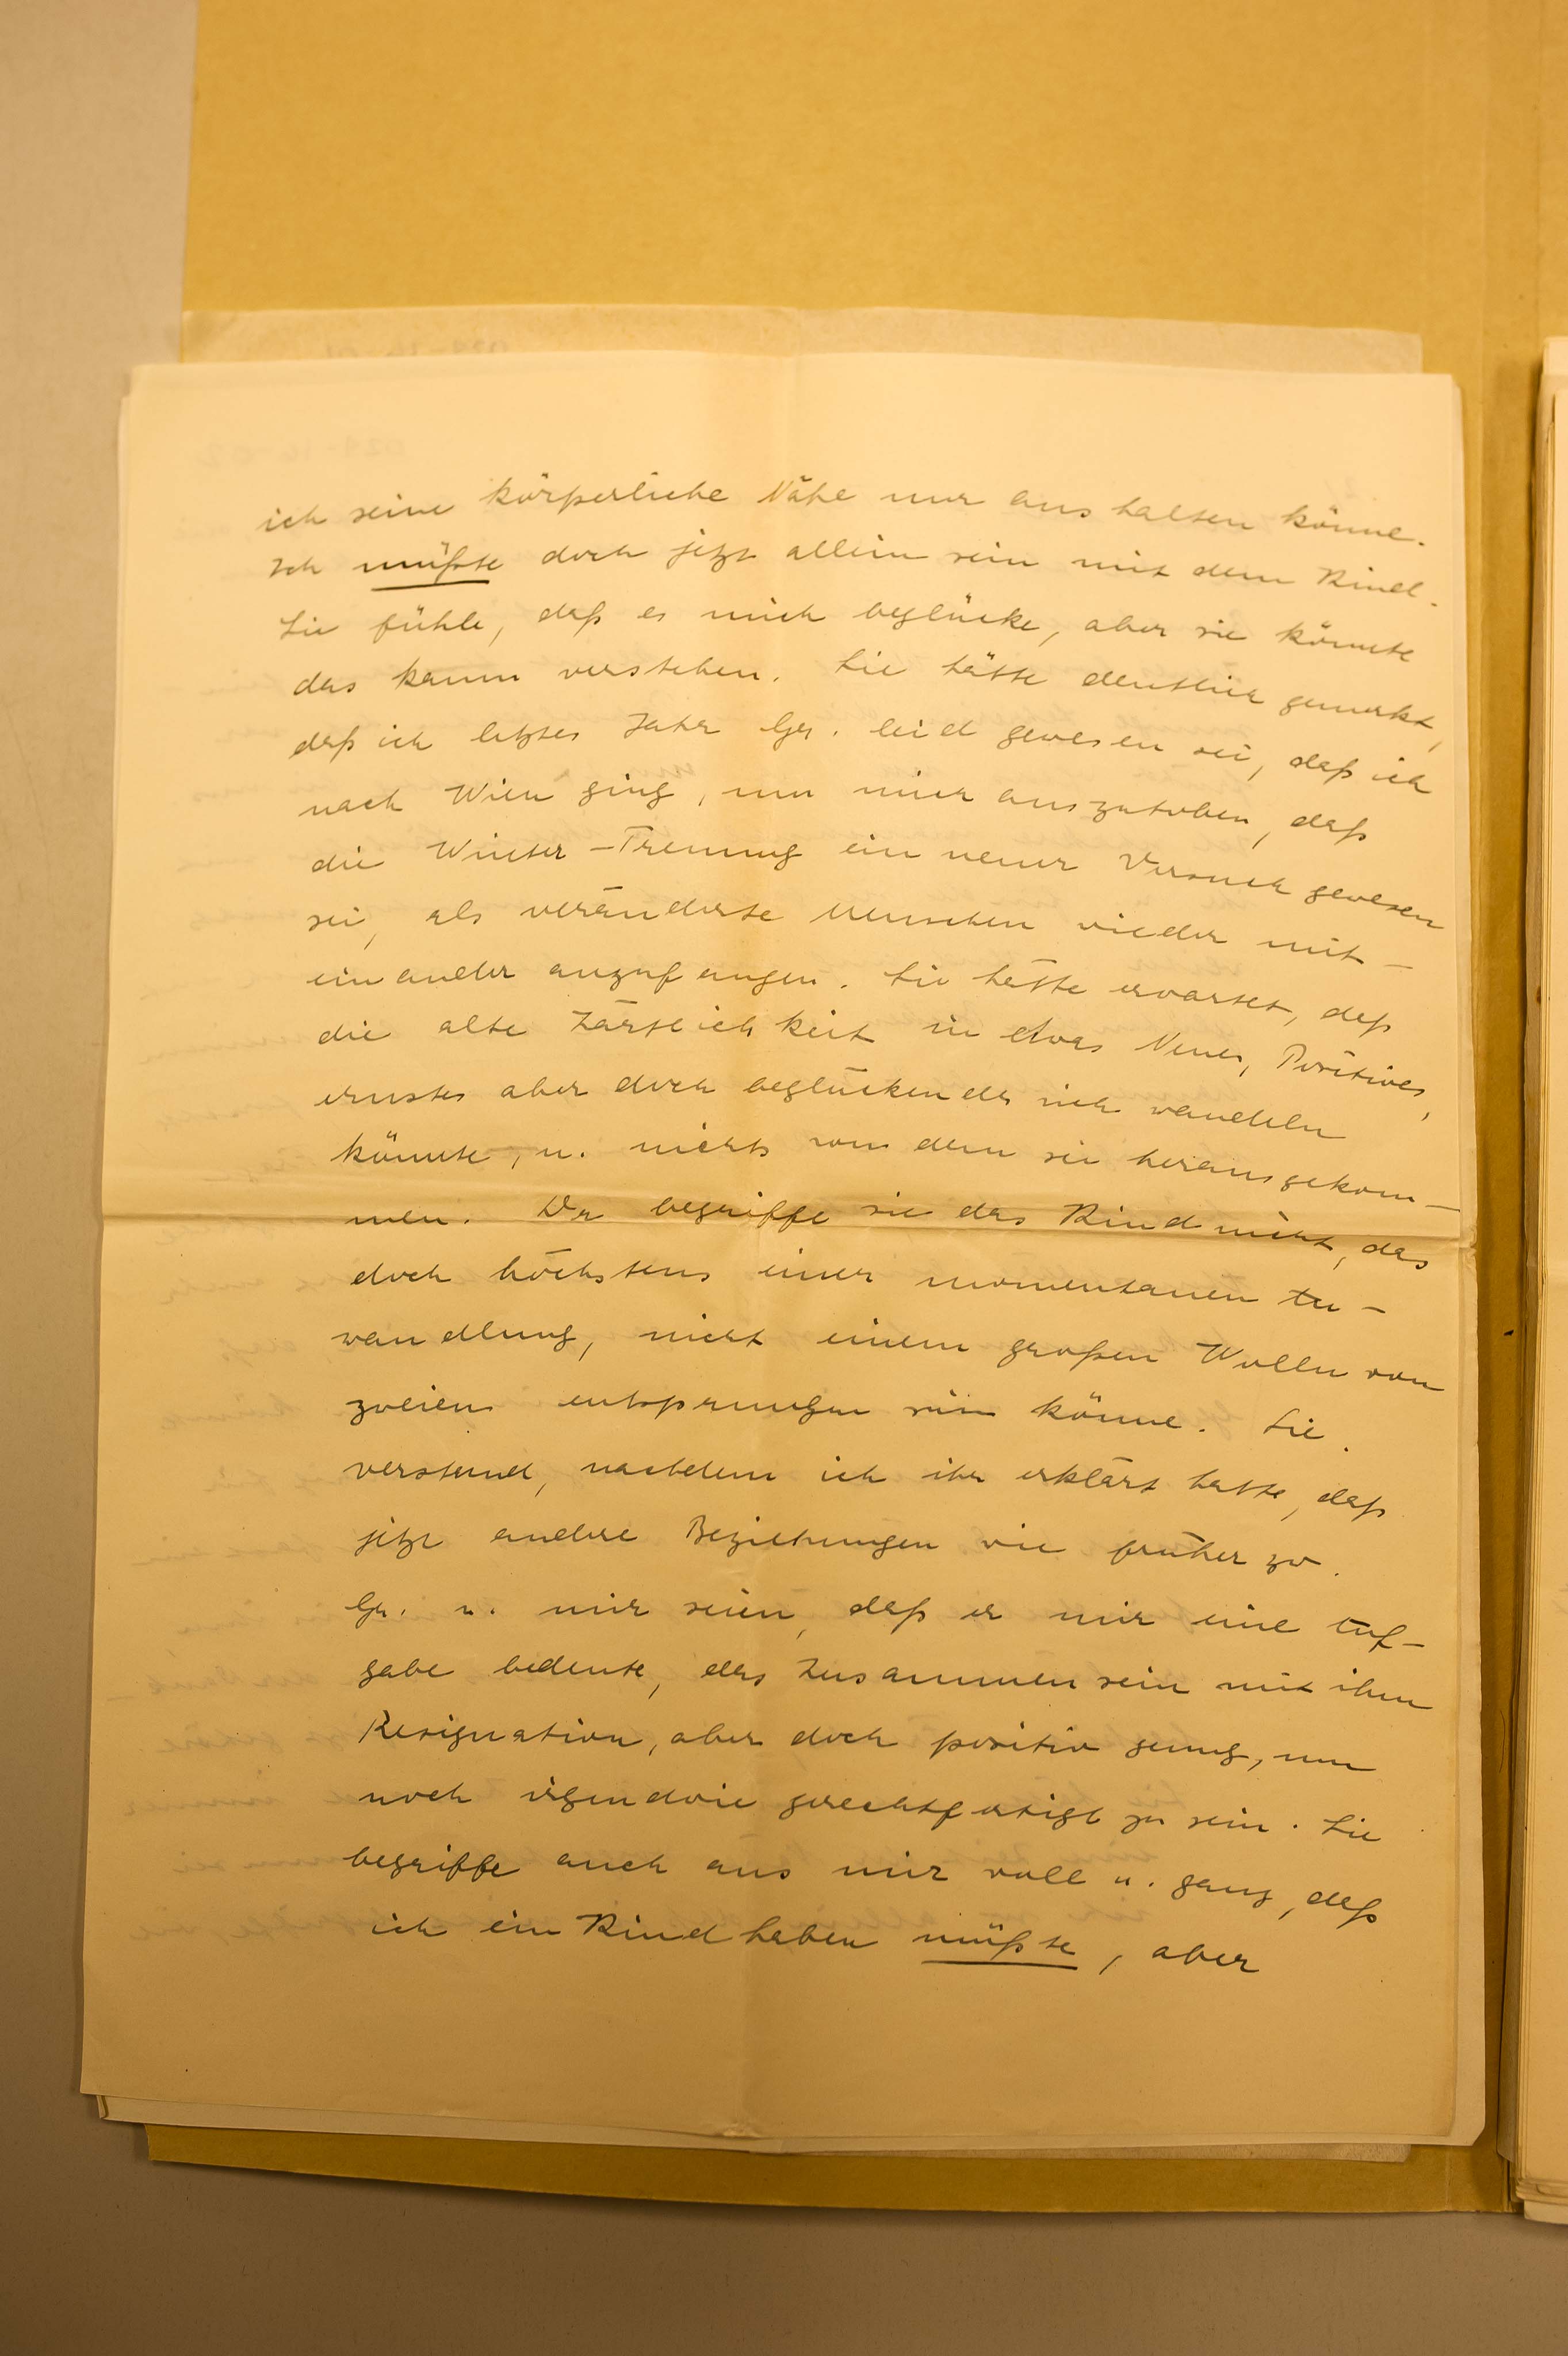 ich seine körperliche Nähe nur aushalten könne.
Ich müßte doch jetzt allein sein mit dem Kind.
Sie fühle, daß es mich beglücke, aber sie könnte
das kaum verstehen. Sie hätte deutlich gemerkt,
daß ich letztes Jahr Gr. leid gewesen sei, daß ich
nach Wien ging, um mich auszutoben, daß
die Winter-Trennung ein neuer Versuch gewesen
sei, als veränderte Menschen wieder mit-
einander anzufangen. Sie hätte erwartet, daß
die alte Zärtlichkeit in etwas Neues, Positives,
ernstes aber doch beglückendes sich wandeln
könnte, u. nichts von dem sei herausgekom-
men. Da begriffe sie das Kind nicht, das
doch höchstens einer momentanen An-
wandlung, nicht einem großen Wollen von
zweien entsprungen sein könne. Sie
verstand, nachdem ich ihr erklärt hatte, daß
jetzt andere Beziehungen wie früher zw.
Gr. u. mir seien, daß er mir eine Auf-
gabe bedeute, das Zusammensein mit ihm
Resignation, aber doch positiv genug, um
noch irgendwie gerechtfertigt zu sein. Sie
begriffe auch aus mir voll u. ganz, daß
ich ein Kind haben müßte, aber